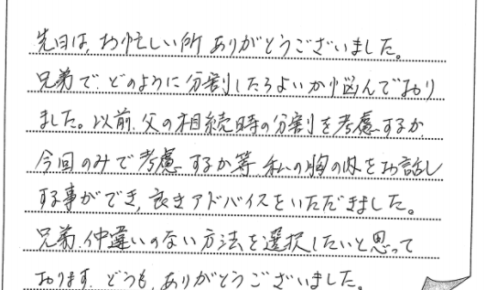 先日は、お忙しい所 ありがとうございました。
兄弟で、どのように分割したらよいか悩んでおり
ました。以前、父の相続時の分割を考慮するか、
今回のみで考慮するか等、私の胸の内をお話し
する事ができ、良きアドバイスをいただきました。
兄弟、仲違いのない方法を選択したいと思って
おります。どうも、ありがとうございました。